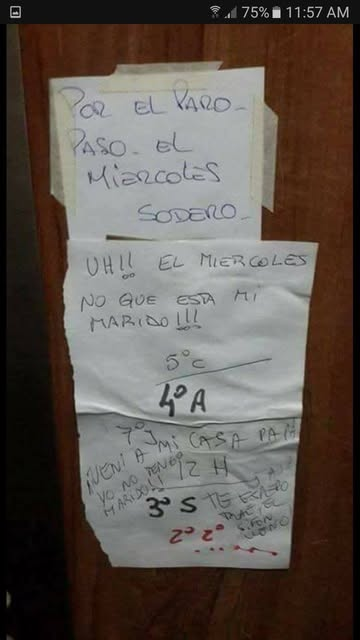 75% 11:57 AM
POR EL PARO_
PASO_ EL
MIERCOLES
SODERO_
UH!! EL MIERCOLES
NO QUE ESTA MI
MARIDO!!!
5º C
4º A
7º J
¡VENI A MI CASA PAPI
YO NO TENGO
MARIDO!!
12 H
3º S
TE ESPERO
TRAE EL
SIFON
LLENO
2º 2º